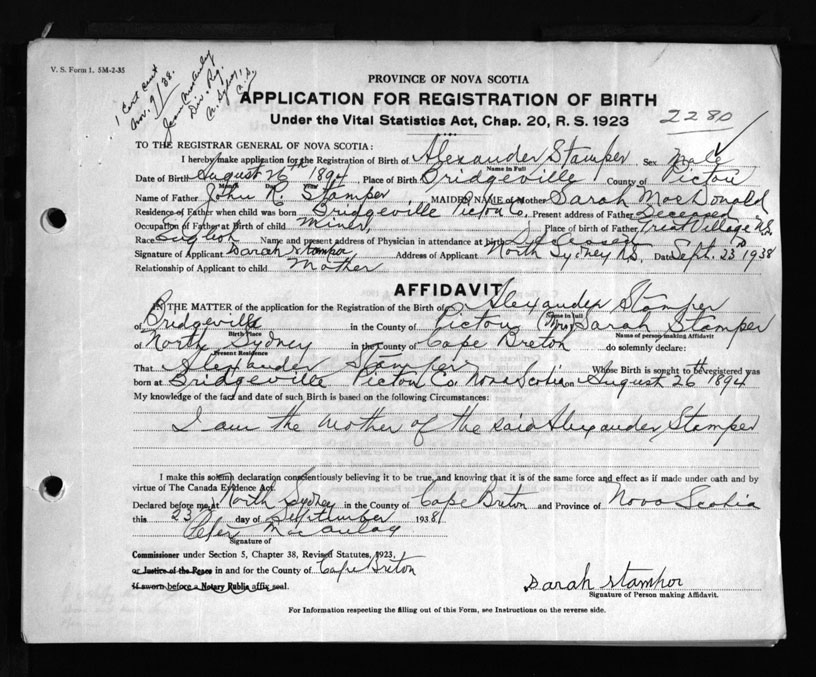 V. S. Form 1. 5M-2-35
1 Cert sent
Nov. 9/38.
Div. Reg.
N. Sydney,
C.B.
PROVINCE OF NOVA SCOTIA
APPLICATION FOR REGISTRATION OF BIRTH
2280
Under the Vital Statistics Act, Chap. 20, R. S. 1923
TO THE REGISTRAR GENERAL OF NOVA SCOTIA:
I hereby make application for the Registration of Birth of Alexander Stamper Sex Male
Name in Full
Date of Birth August 26th 1894 Place of Birth Bridgeville County of Pictou
Month Day Year
Name of Father John R. Stamper MAIDEN NAME of Mother Sarah MacDonald
Residence of Father when child was born Bridgeville Pictou Co. Present address of Father Deceased
Occupation of Father at Birth of child Miner, Place of birth of Father Great Village N.S.
Race English Name and present address of Physician in attendance at birth Deceased
Signature of Applicant Sarah Stamper Address of Applicant North Sydney N.S. Date Sept. 23rd 1938
Relationship of Applicant to child Mother
AFFIDAVIT
IN THE MATTER of the application for the Registration of the Birth of Alexander Stamper
Name in Full
of Bridgeville in the County of Pictou (Mrs) Sarah Stamper
Birth Place Name of person making Affidavit
of North Sydney in the County of Cape Breton do solemnly declare:
Present Residence
That Alexander Stamper Whose Birth is sought to be registered was
born at Bridgeville Pictou Co. Nova Scotia on August 26th 1894
My knowledge of the fact and date of such Birth is based on the following Circumstances:
I am the mother of the said Alexander Stamper
I make this solemn declaration conscientiously believing it to be true, and knowing that it is of the same force and effect as if made under oath and by
virtue of The Canada Evidence Act.
Declared before me at North Sydney in the County of Cape Breton and Province of Nova Scotia
this 23 day of September 1938
Peter Macaulay
Signature of
Commissioner under Section 5, Chapter 38, Revised Statutes, 1923.
or Justice of the Peace in and for the County of Cape Breton
If sworn before a Notary Public affix seal.
Sarah Stamper
Signature of Person making Affidavit.
For Information respecting the filling out of this Form, see Instructions on the reverse side.